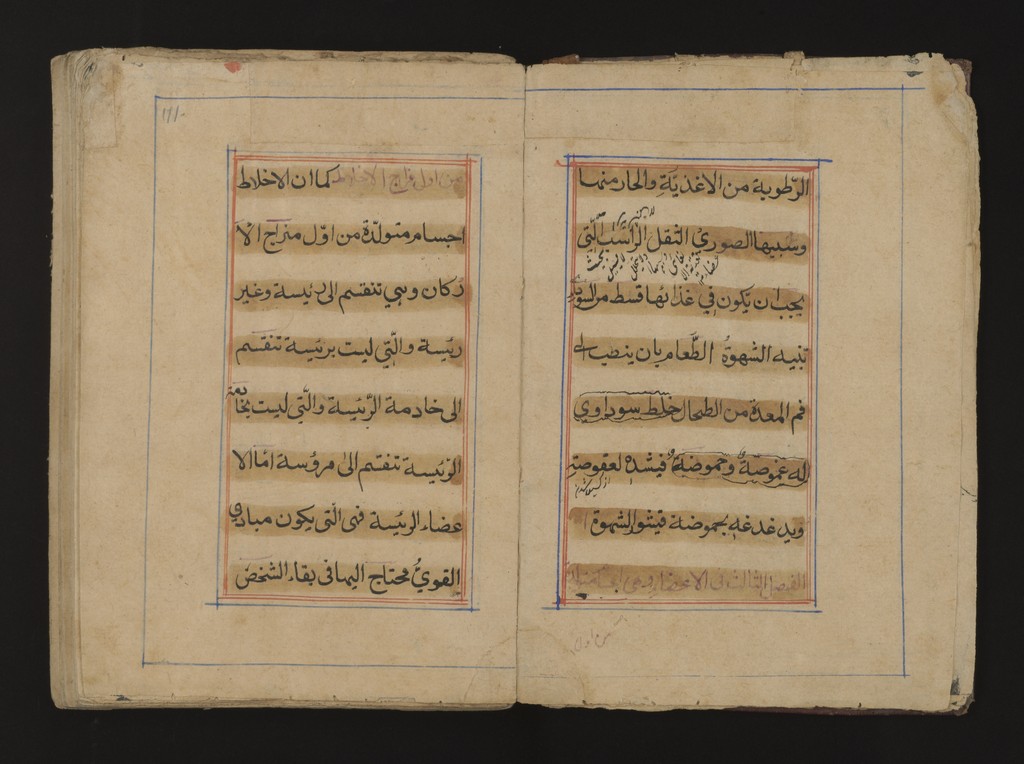 الرّطوبة من الاغذيّة والحار منها
وسببها الصوري الثقل الراسب الّتي
يجب ان يكون في غذائها قسط من السودا
تنبيه الشهوةُ الطّعام بان ينصب الى
فم المعدة من الطحال خلط سوداوي
له عموصةٌ وحموضةٌ فيشده لعفوصته
ويدغدغه بحموضة فيشو الشهوة
الفصل الثالث فى الاعضاء وهى اجسام متولدة
من اول
من اول مزاج الاخلاط كما ان الاخلاط
اجسام متولدّة من اوّل مزاج الا
ركان وهي تنقسم الى رئيسة وغير
رئيسة والّتي ليت برئيسة تنقسم
الى خادمة الرّئيسة والّتي ليت بخادمة
الرّئيسة تنقسم الى مروسة امّا الا
عضاء الرئيسة فهى الّتي يكون مبادي
القويُّ محتاج اليها في بقاء الشخص